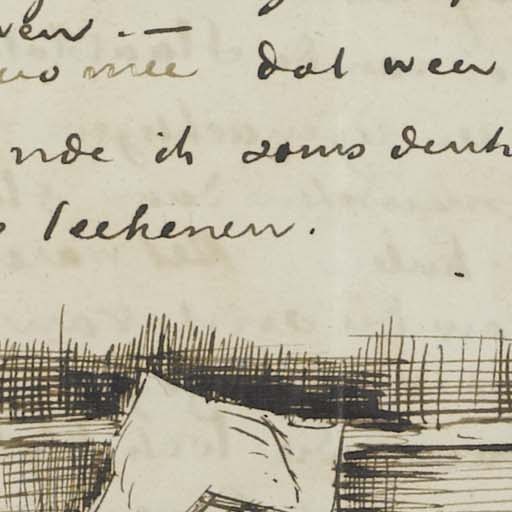 ven. —
uo mee dat weer
nde ik soms denk
teekenen.